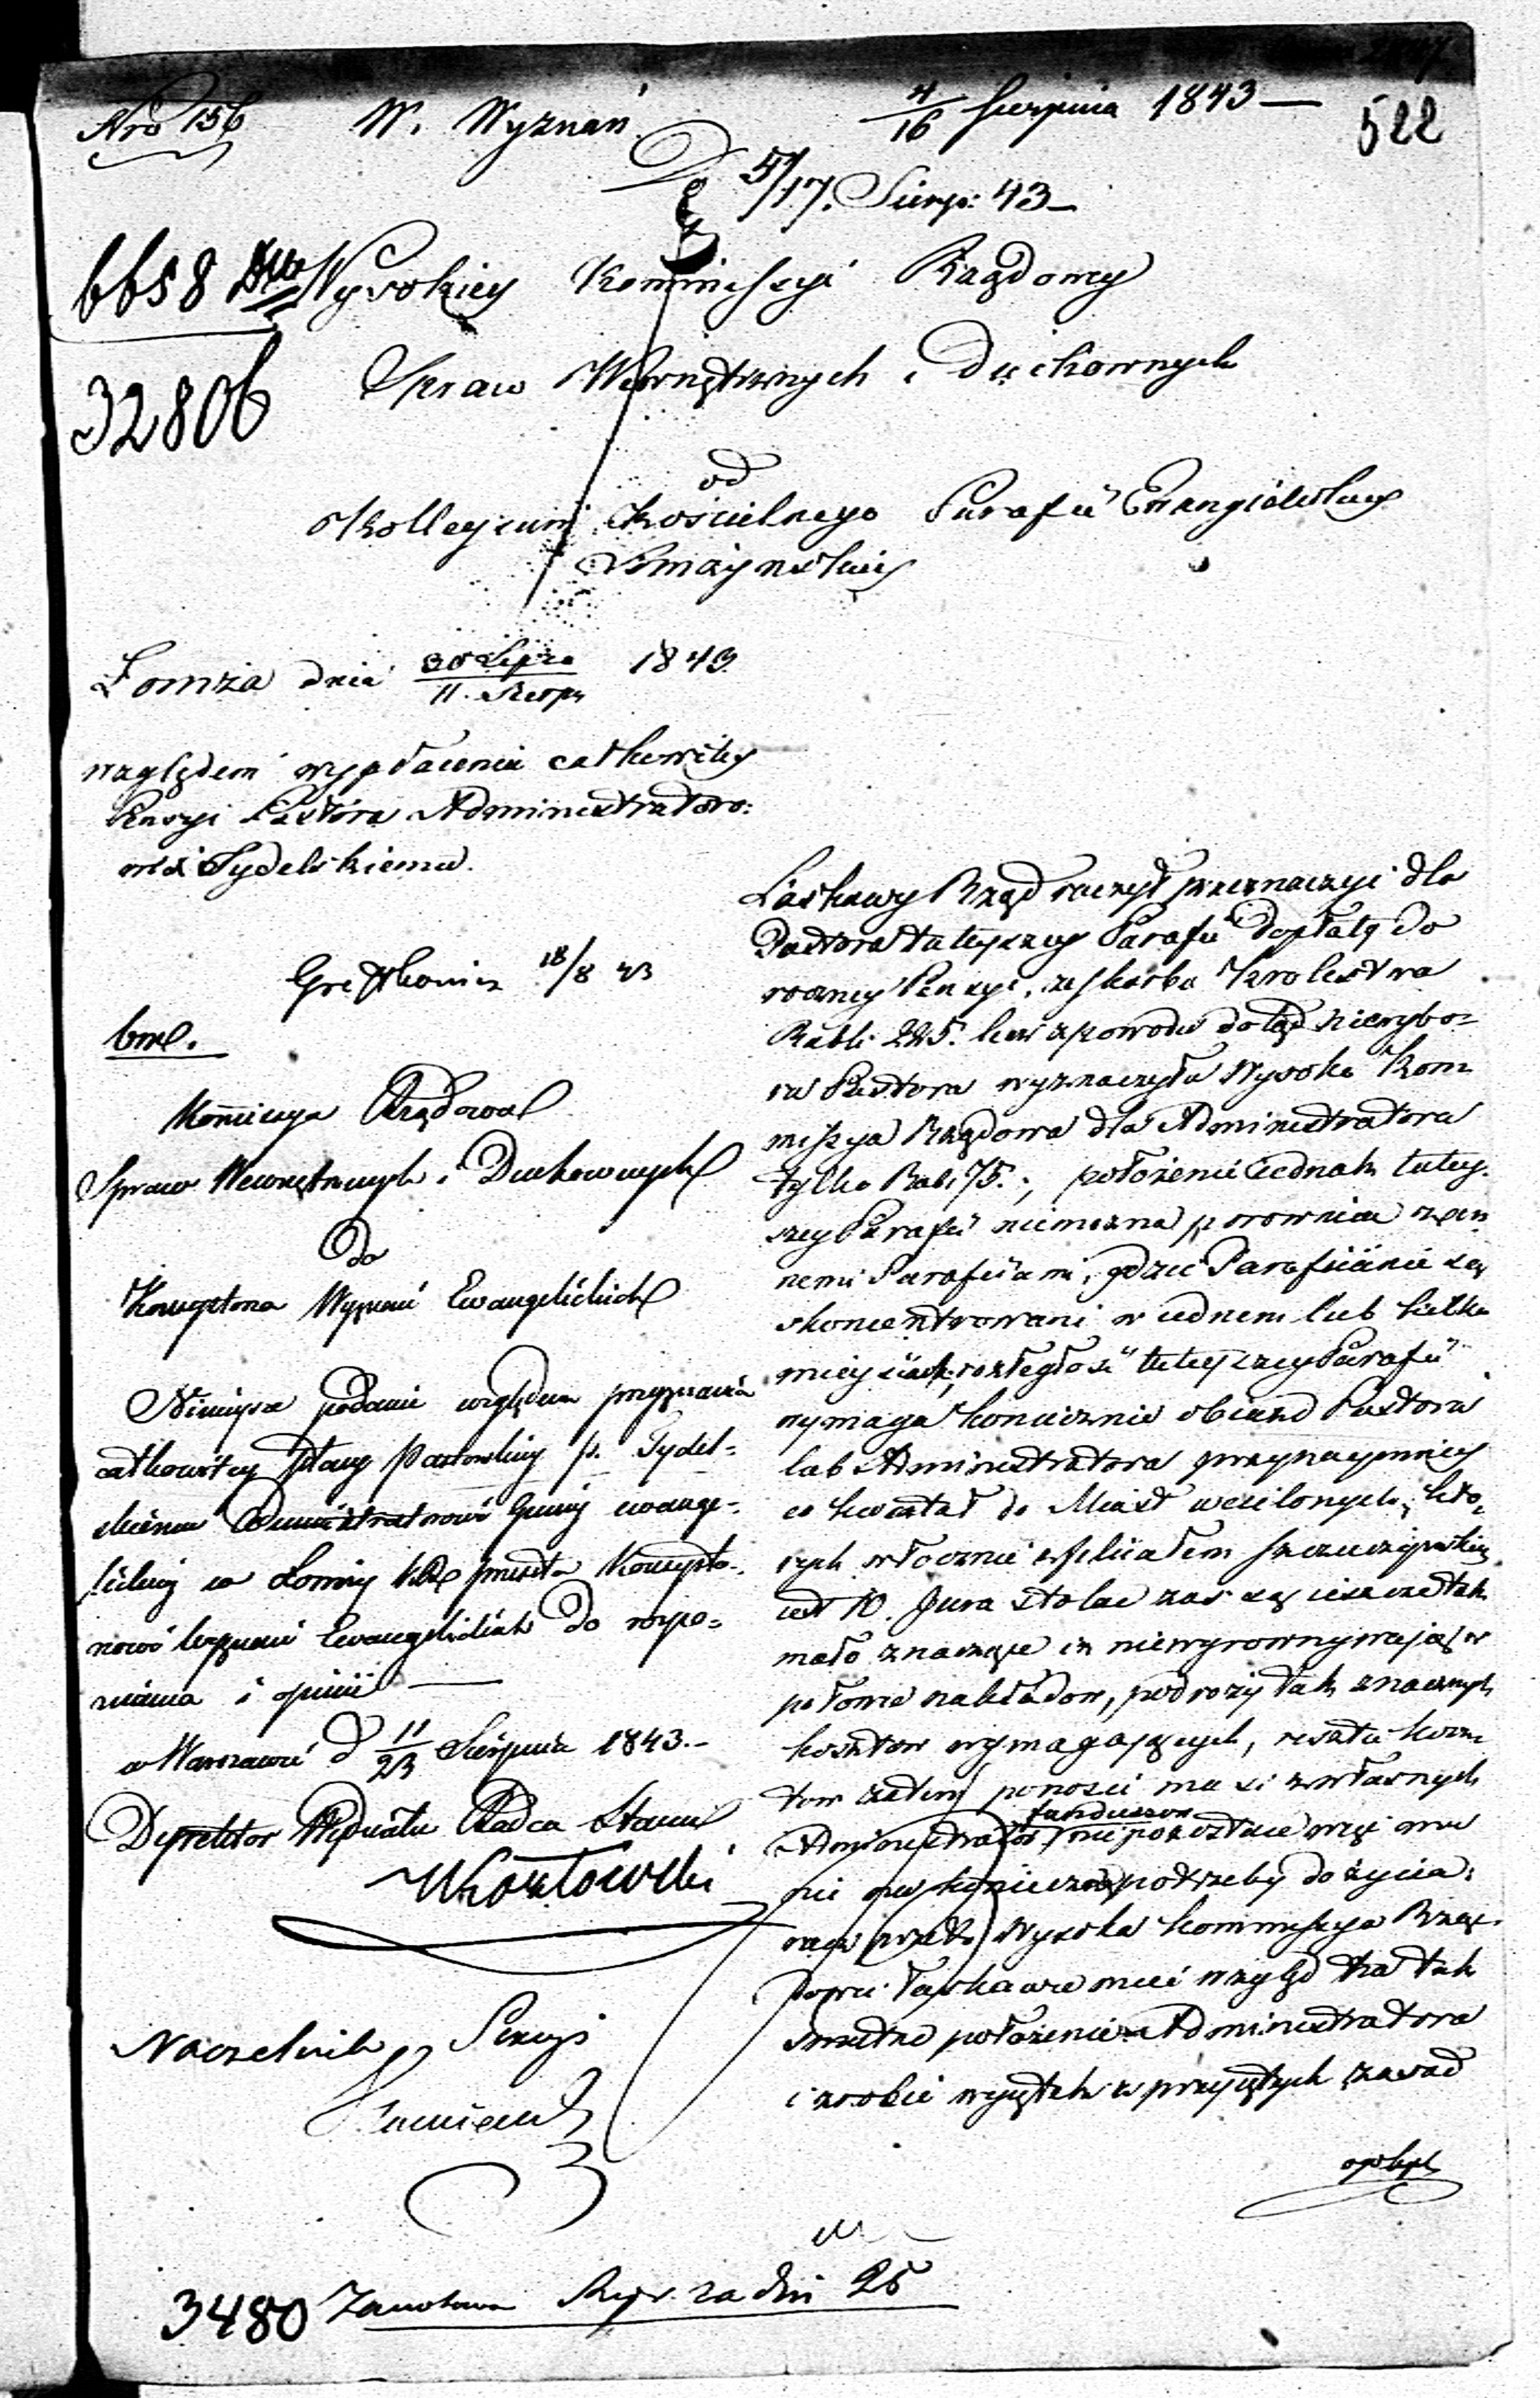 Nro 156 W. Wyznań 4/16 Sierpnia 1843 —
522
D 5/17. Sierp: 43 —
6658
32806
Wysokiey Kommissyi Rządowey
Spraw Wewnętrznych i Duchownych
od
Kollegium Kościelnego Parafii Ewangielickiey
Łomżyńskiey
Łomża dnia 30 Lipca / 11. Sierp 1843.
względem wypłacenia całkowitey
Pensyi Pastora Administratoro:
wi Tydelskiemu.
18/8 43
Kommissya Rządowa
Spraw Wewnętrznych i Duchownych
Do
Konsystorza Wyznań Ewangelickich
Niniejsze podanie względem przyznania
całkowitey płacy Pastorskiey p. Tydel=
skiemu Administratorowi Gminy ewange=
lickiey w Łomży przesyła Konsysto=
rzowi Wyznań Ewangelickich do rozpo=
znania i opinii —
w Warszawie d 11/23 Sierpnia 1843. —
Dyrektor Wydziału Radca Stanu
WKozłowski
Naczelnik Sekcyi
Łaskawy Rząd raczył przeznaczyć dla
Pastora tuteyszey Parafii dopłatę do
roczney Pensyi, ze skarbu Krolestwa
Rubli 225. lecz z powodu dotąd niewybo=
ru Pastora wyznaczyła Wysoka Kom=
missya Rządowa dla Administratora
tylko Rubs 75.; położenie iednak tutey=
szey Parafii niemożna porownać z in
nemi Parafiiami, gdzie Parafiianie są
skoncentrowani w iednem lub kilku
mieyscach, rozległość tuteyszey Parafii
wymaga koniecznie obiazd Pastora
lub Administratora przynaymniey
co kwartał do Miast wcielonych, któ=
rych włącznie z filiałem Szczuczyńskim
iest 10. Jura stolae zaś są ieszcze tak
mało znaczące iż niewyrownywaią w
połowie nakładow, podroży tak znacznych
kosztow wymagaiących, resztę kosz
tow zatem ponosić musi z własnych
funduszow
Administrator, nie pozostaie więc mu
nic na konieczne potrzeby do życia;
racz przeto Wysoka Kommissya Rzą=
dowa łaskawie mieć wzgląd na tak
smutne położenie Administratora
i zrobić wyjątek z przyjętych zasad
3480 Zanotowa Rejr. za dni 25